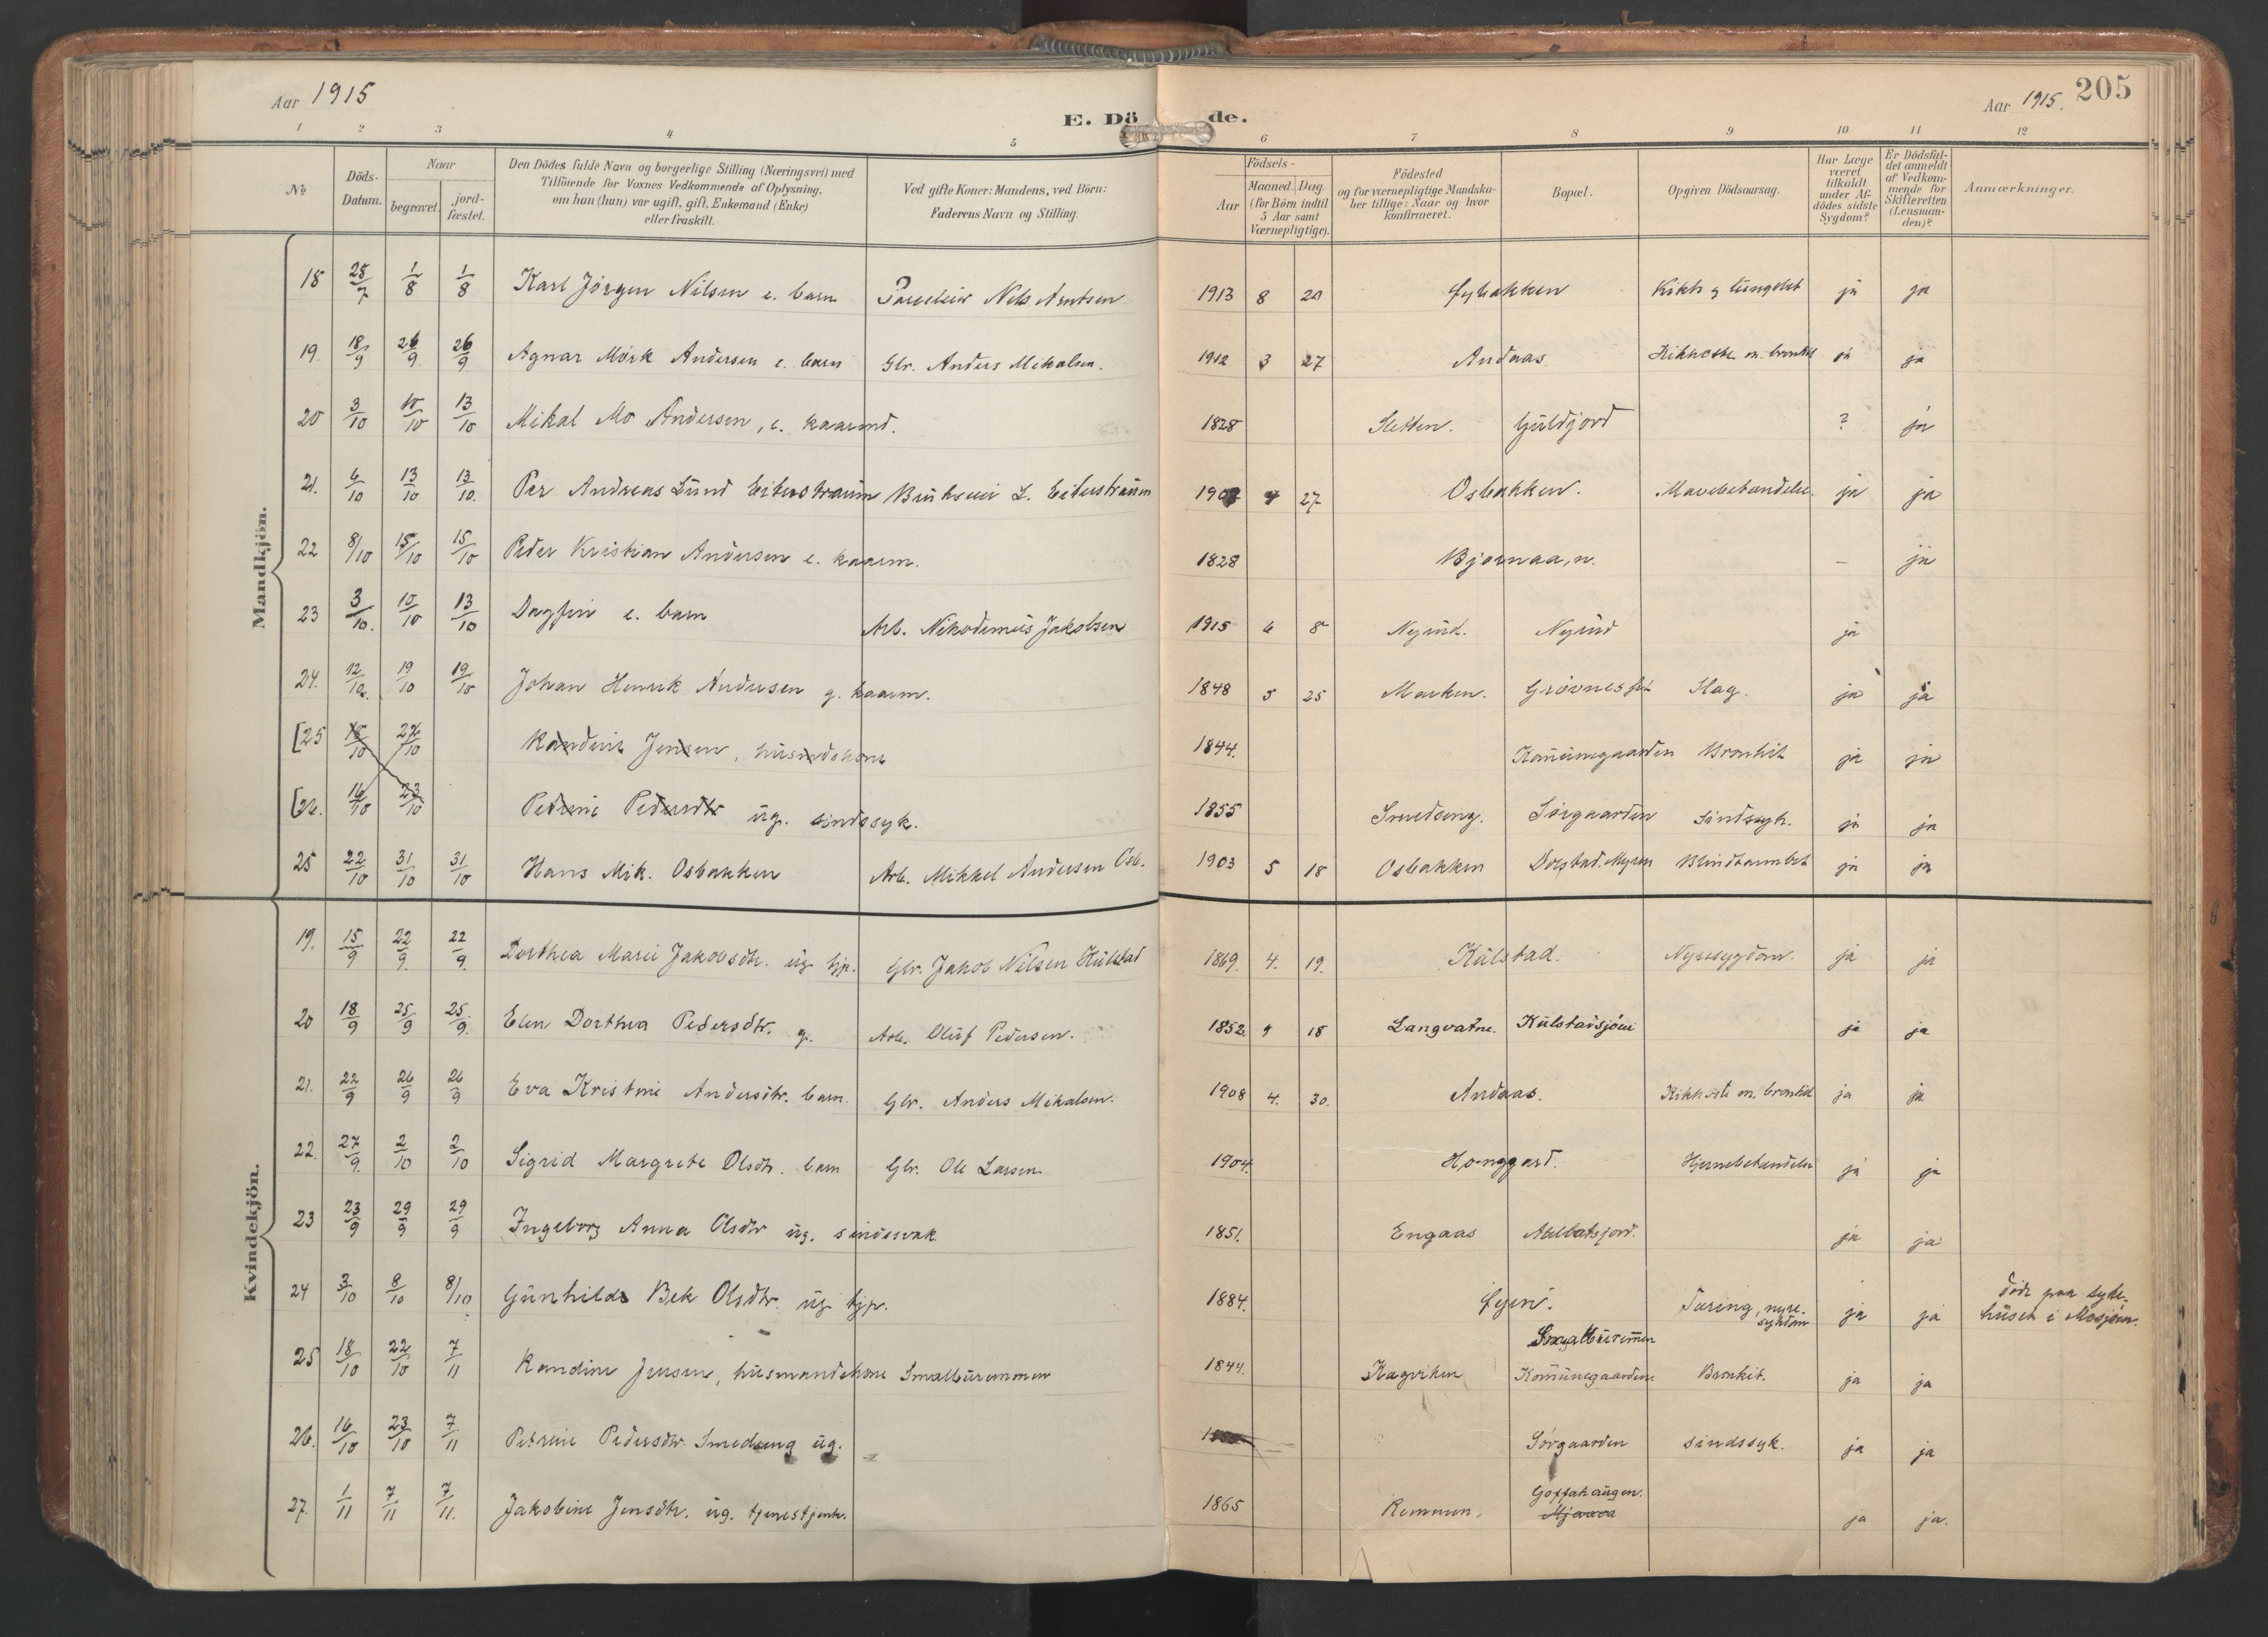 Aar 1915
E. Dö de.
Aar 1915. 205
1 2 3 4 5 6 7 8 9 10 11 12
No
Döds-Datum.
Naar
begravet. jord-fæstet.
Den Dödes fulde Navn og borgerlige Stilling (Næringsvei) med
Tilföiende for Voxnes Vedkommende af Oplysning,
om han (hun) var ugift, gift, Enkemand (Enke)
eller fraskilt.
Ved gifte Koner: Mandens, ved Börn:
Faderens Navn og Stilling.
Födsels-
Aar Maaned. Dag.
(for Börn indtil
5 Aar samt
Værnepligtige).
Födested
og for værnepligtige Mandska-
ber tillige: Naar og hvor
konfirmeret.
Bopæl.
Opgiven Dödsaarsag.
Har Læge
været
tilkaldt
under Af-
dödes sidste
Sygdom?
Er Dödsfal-
det anmeldt
af Vedkom-
mende for
Skifteretten
(Lensman-
den)?
Anmærkninger.
Mandkjön.
18 25/7 1/8 1/8 Karl Jörgen Nilsen e. barn Nils Arntsen 1913 8 20 Lybakken ja ja
19. 18/9 26/9 26/9 Agnar Mörk Andersen e. barn Gbr. Anders Mikalsen. 1912 3 27 Andaas Kikhoste m. bronkit ja ja
20 3/10 10/10 13/10 Mikal Mo Andersen, e. kaarmd. 1828 Sletten. Guldfjord ? ja
21. 6/10 13/10 13/10. Per Andreas Lund Eiterstraum L. Eiterstraum 27 Osbakken. ja ja
22 8/10 15/10 15/10 Peder Kristian Andersen e. kaarm. 1828 Bjornaa, n. - ja
23 3/10. 10/10 13/10 Dagfin e. barn Arb. Nikodemus Jakobsen 1915 6 8 Nyrud. Nyrud ja
24. 12/10. 19/10 19/10 Johan Henrik Andersen g. kaarm. 1848 5 25 Marken. Slag. ja ja
[25 18/10 22/10 Randine Jensen, husmdskone 1844. Kommunegaarden Bronkit ja ja
[26. 16/10 23/10 Petrine Pedersdtr ug. sindssyk. 1855 Smedseng. Sörgaarden Sindssyk. ja ja
25 22/10 31/10 31/10 Hans Mik. Osbakken Arb. Mikkel Andersen Osb. 1903 5 18 Osbakken Dolstad. Myren Blindtarmbet ja ja
Kvindekjön.
19. 15/9 22/9. 22/9. Dorthea Marie Jakobsdtr. ug. tjp. Gbr. Jakob Nilsen Kulstad 1869. 4. 19. Kulstad. Nyresygdom. ja ja
20 18/9 25/9 25/9. Elen Dorthea Pedersdtr. g. Arb. Oluf Pedersen. 1852. 9 18 Langvatne. Kulstadsjöen ja ja
21. 22/9 26/9 26/9 Eva Kristine Andersdtr. barn. Gbr. Anders Mikalsen. 1908 4. 30. Andaas. Kikhoste m. bronkit ja ja
22. 27/9. 2/10 2/10 Sigrid Margrete Olsdtr. barn Gbr. Ole Larsen 1904. Honggard. Hjernebetændelse ja ja
23 23/9 29/9 29/9 Ingeborg Anna Olsdtr ug. sindssvak 1851. Engaas ja ja
24 3/10 8/10 8/10 Gunhild Bek Olsdtr. ug. tjp. 1884. Tæring, nyre-sykdom ja ja döde paa syke-huset i Mosjöen.
25 18/10 22/10 7/11 Randine Jensen, husmandskone Smalburemmen 1844. Kagviken Smalburemmen Kommunegaarden. Bronkit. ja ja
26. 16/10 23/10 7/11 Petrine Pedersdtr. Smedseng ug. Sörgaarden sindssyk. ja ja
27. 1/11 7/11 7/11. Jakobine Jensdtr. ug. tjenestjente. 1865 Remmen. Goffahaugen. Mjaavas ja ja.